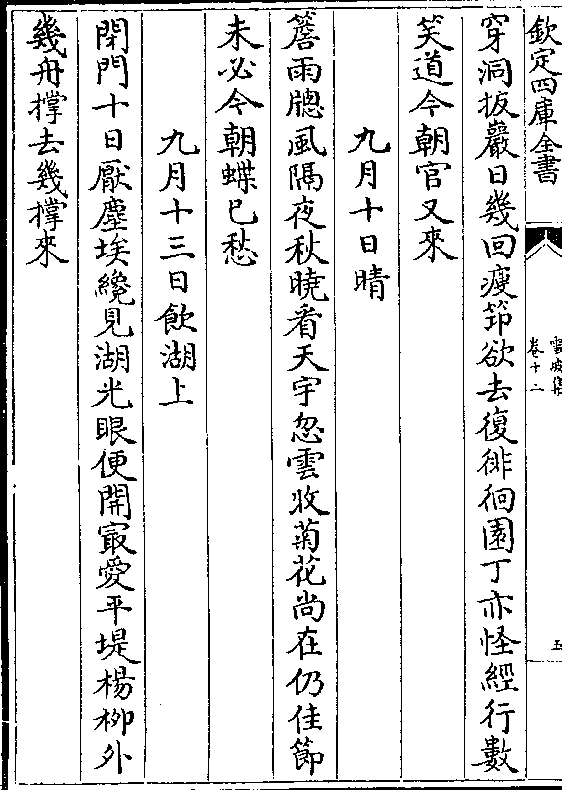 欽定四庫全書
雪坡集
卷十二
五
穿洞扳巖日幾回瘦笻欲去復徘徊園丁亦怪經行數
笑道今朝官又來
九月十日晴
簷雨牕風隔夜秋曉看天宇忽雲收菊花尚在仍佳節
未必今朝蝶已愁
九月十三日飲湖上
閉門十日厭塵埃纔見湖光眼便開㝡愛平堤楊栁外
幾舟撐去幾撐來